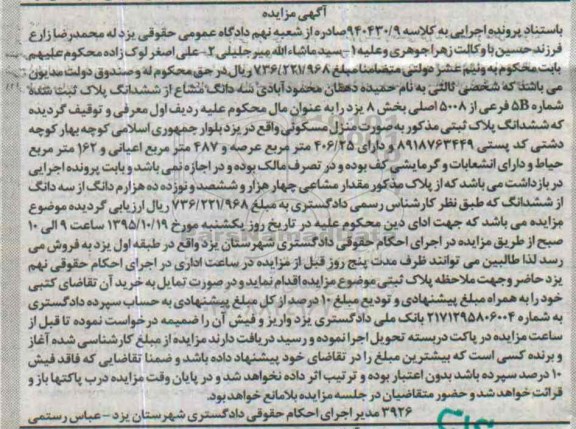 آگهی مزایده
باستناد پرونده اجرایی به کلاسه ۹۴۰۴۳۰/۹ صادره از شعبه نهم دادگاه عمومی حقوقی یزد له محمدرضا زارع
فرزند حسین با وکالت زهرا جوهری وعلیه ۱-سید ماشاءالله میرجلیلی ۲-علی اصغر لوک زاده محکوم علیهم
بابت محکوم به ونیم عشر دولتی متضامنا مبلغ ۷۳۶/۲۲۱/۹۶۸ ریال در حق محکوم له و صندوق دولت مدیون
می باشند که شخص ثالثی به نام حمیده دهقان محمودآبادی سه دانگ مشاع از ششدانگ پلاک ثبت شده
شماره 5B فرعی از ۵۰۰۸ اصلی بخش ۸ یزد را به عنوان مال محکوم علیه ردیف اول معرفی و توقیف گردیده
که ششدانگ پلاک ثبتی مذکور به صورت منزل مسکونی واقع در یزد بلوار جمهوری اسلامی کوچه بهار کوچه
دشتی کد پستی ۸۹۱۸۷۶۳۴۴۹ و دارای ۴۰۶/۲۵ متر مربع عرصه و ۴۸۷ متر مربع اعیانی و ۱۶۲ متر مربع
حیاط و دارای انشعابات و گرمایشی کف بوده و در تصرف مالک بوده و در اجازه نمی باشد و بابت پرونده اجرایی
در بازداشت می باشد که از پلاک مذکور مقدار مشاعی چهار هزار و ششصد و نوزده ده هزارم دانگ از سه دانگ
از ششدانگ که طبق نظر کارشناس رسمی دادگستری به مبلغ ۷۳۶/۲۲۱/۹۶۸ ریال ارزیابی گردیده موضوع
مزایده می باشد که جهت ادای دین محکوم علیه در تاریخ روز یکشنبه مورخ ۱۳۹۵/۱۰/۱۹ ساعت ۹ الی ۱۰
صبح از طریق مزایده در اجرای احکام حقوقی دادگستری شهرستان یزد واقع در طبقه اول یزد به فروش می
رسد لذا طالبین می توانند ظرف مدت پنج روز قبل از مزایده در ساعت اداری در اجرای احکام حقوقی نهم
یزد حاضر و جهت ملاحظه پلاک ثبتی موضوع مزایده اقدام نماید و در صورت تمایل به خرید آن تقاضای کتبی
خود را به همراه مبلغ پیشنهادی و تودیع مبلغ ۱۰ درصد از کل مبلغ پیشنهادی به حساب سپرده دادگستری
به شماره ۲۱۷۱۲۹۵۸۰۶۰۰۴ بانک ملی دادگستری یزد واریز و فیش آن را ضمیمه درخواست نموده تا قبل از
ساعت مزایده در پاکت دربسته تحویل اجرا نموده و رسید دریافت دارند مزایده از مبلغ کارشناسی شده آغاز
و برنده کسی است که بیشترین مبلغ را در تقاضای خود پیشنهاد داده باشد و ضمنا تقاضایی که فاقد فیش
۱۰ درصد سپرده باشد بدون اعتبار بوده و ترتیب اثر داده نخواهد شد و در پایان وقت مزایده درب پاکتها باز و
قرائت خواهد شد و حضور متقاضیان در جلسه مزایده بلامانع خواهد بود.
۳۹۲۶ مدیر اجرای احکام حقوقی دادگستری شهرستان یزد -عباس رستمی